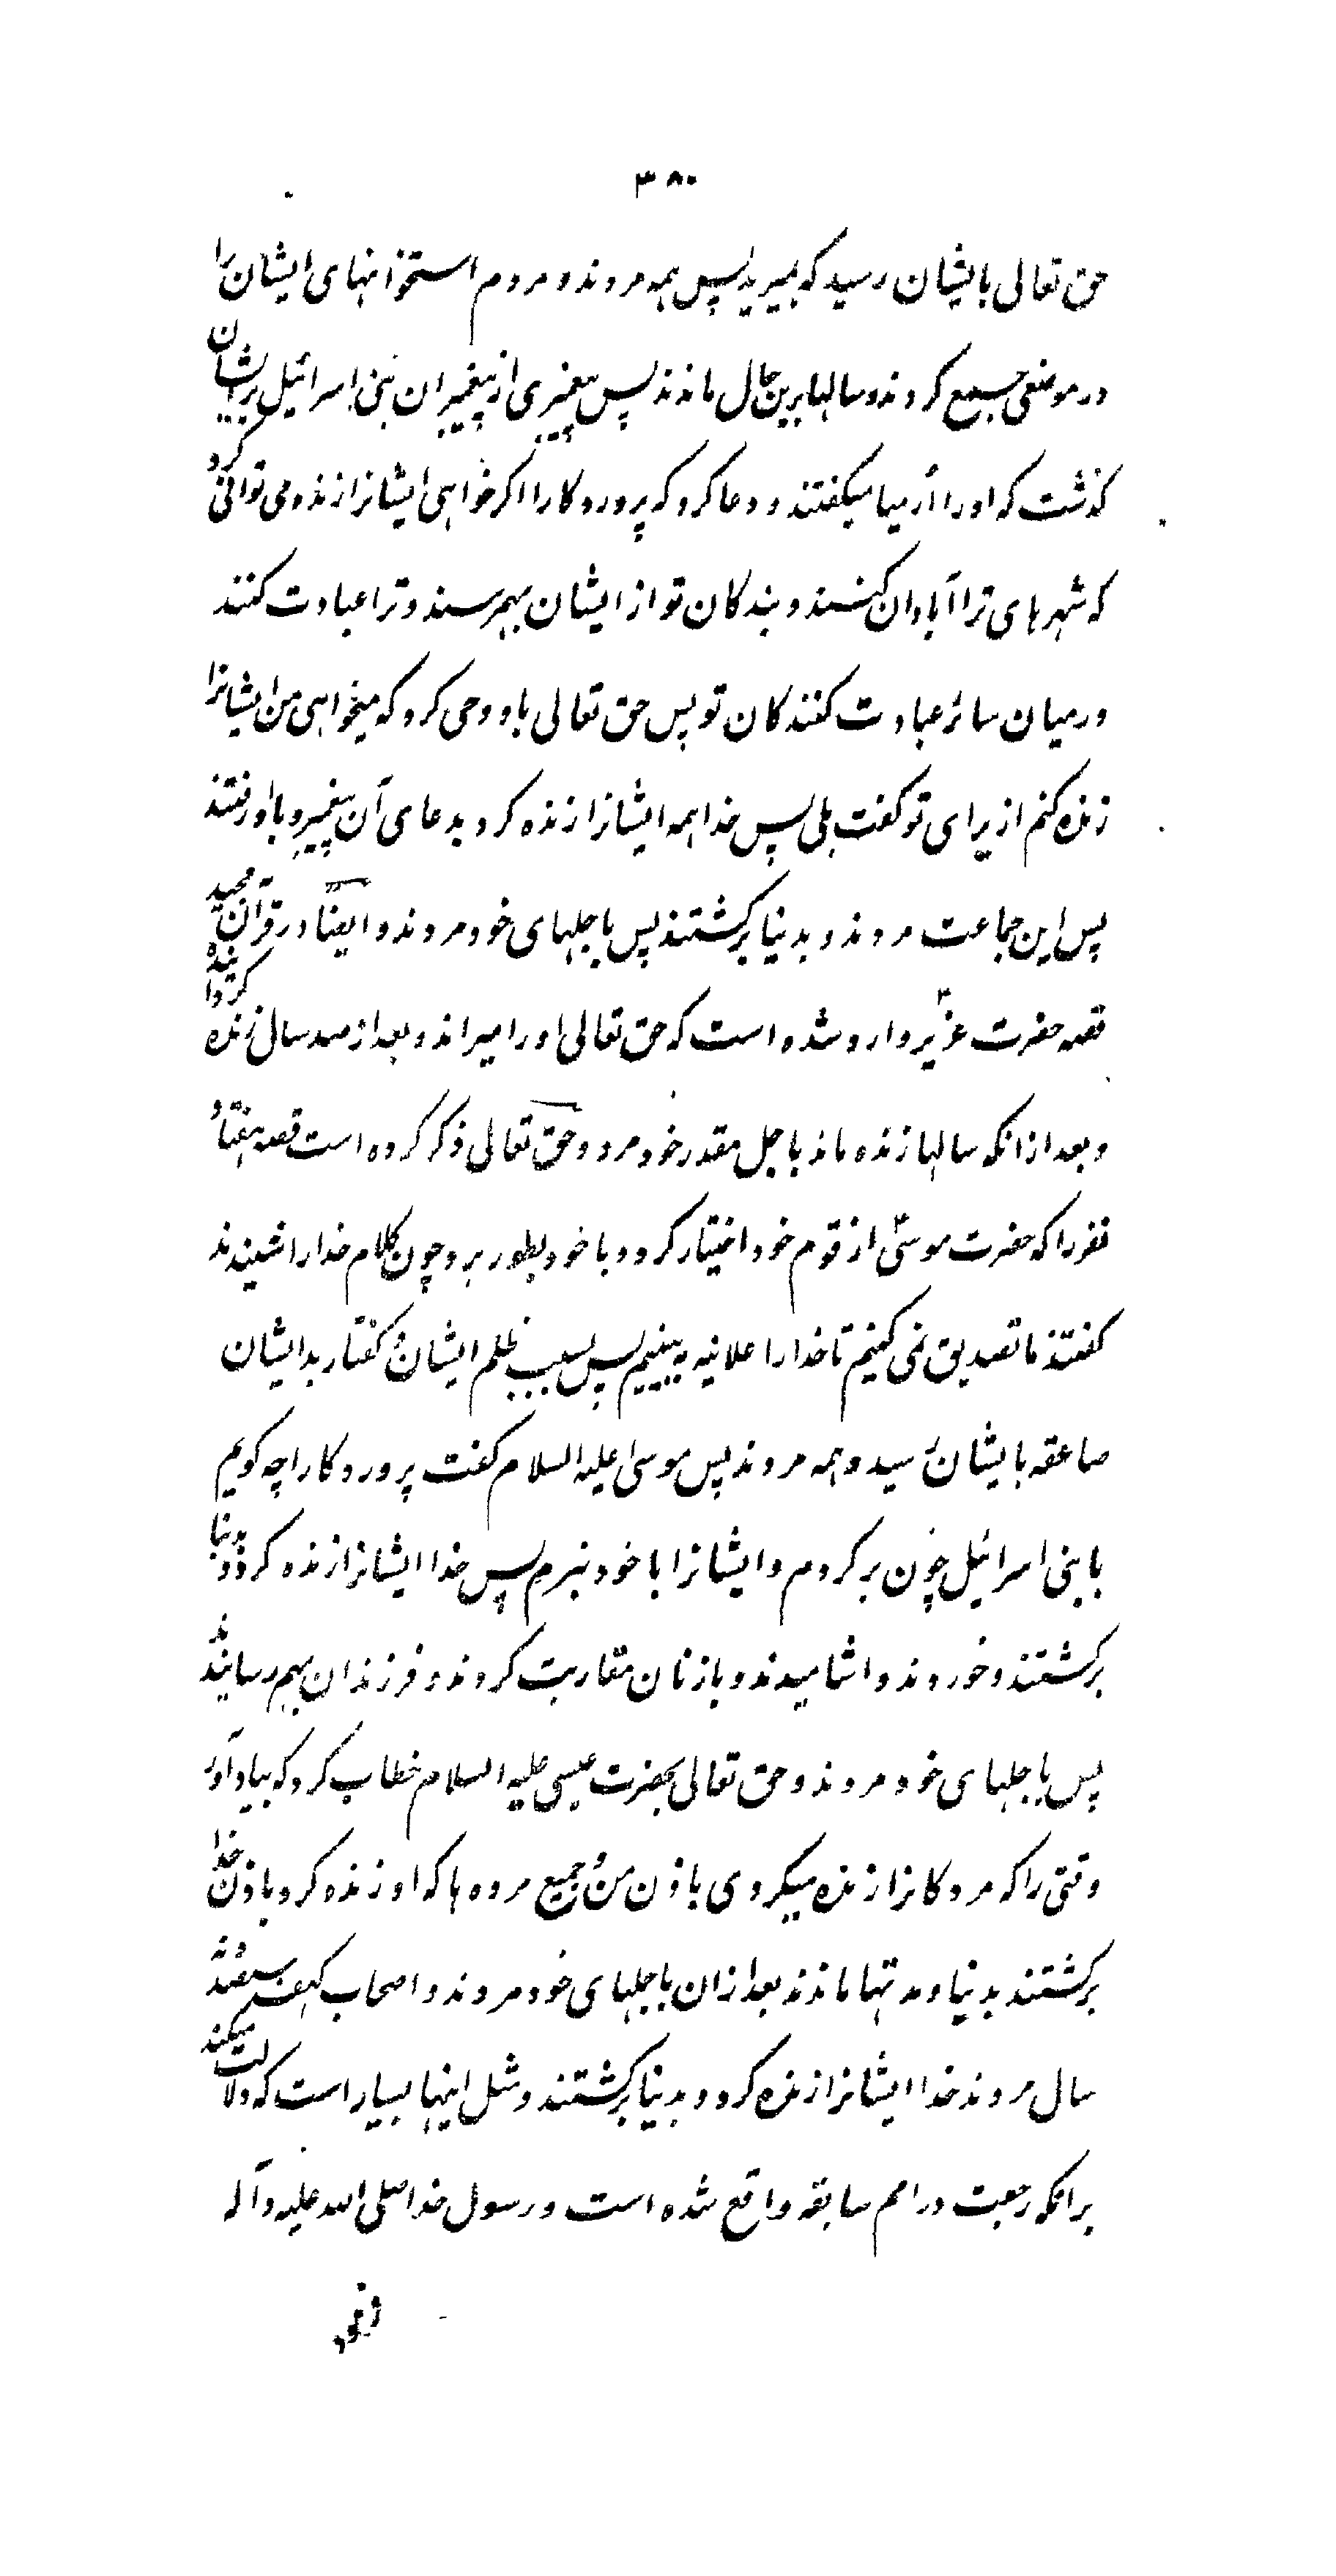 ۳۸۰
حق تعالی بایشان رسید که بمیرید پس همه مردند و مردم استخوانهای ایشان را
در موضعی جمع کردند و سالها برین حال ماندند پس پیغمبری از پیغمبران بنی اسرائیل بر ایشان
کذشت که او را ارمیا میکفتند و دعا کرد که پروردکارا اکر خواهی ایشانرا زنده می توانی کرد
که شهرهای ترا آبادان کنند و بندکان تو از ایشان بهمرسند و ترا عبادت کنند
در میان سائر عبادت کنندکان تو پس حق تعالی باو وحی کرد که میخواهی من ایشانرا
زنده کنم از برای تو کفت بلی پس خدا همه ایشانرا زنده کرد بدعای آن پیغمبر و با او رفتند
پس این جماعت مردند و بدنیا برکشتند پس باجلهای خود مردند و ایضا در قرآن مجید
قصه حضرت عزیرؑ وارد شده است که حق تعالی او را میراند و بعد از صد سال زنده کردانید
و بعد از انکه سالها زنده ماند باجل مقدر خود مرد و حق تعالی ذکر کرده است قصه هفتاد
نفر را که حضرت موسیؑ از قوم خود اختیار کرد و با خود بطور برد و چون کلام خدا را شنیدند
کفتند ما تصدیق نمی کنیم تا خدا را علانیه به بینیم پس بسبب ظلم ایشان و کفتار بد ایشان
صاعقه بایشان رسید و همه مردند پس موسی علیه السلام کفت پروردکارا چه کویم
با بنی اسرائیل چون برکردم و ایشانرا با خود نبرم پس خدا ایشانرا زنده کرد و بدنیا
برکشتند و خوردند و اشامیدند و با زنان مقاربت کردند و فرزندان بهم رسانیدند
پس باجلهای خود مردند و حق تعالی بحضرت عیسی علیه السلام خطاب کرد که بیاد آور
وقتی را که مردکانرا زنده میکردی باذن من و جمیع مرده ها که او زنده کرد باذن خدا
برکشتند بدنیا و مدتها ماندند بعد ازان باجلهای خود مردند و اصحاب کهف سیصد و نه
سال مردند خدا ایشانرا زنده کرد و بدنیا برکشتند و مثل اینها بسیار است که دلالت میکند
برانکه رجعت در امم سابقه واقع شده است و رسول خدا صلی الله علیه و آله
فرمود